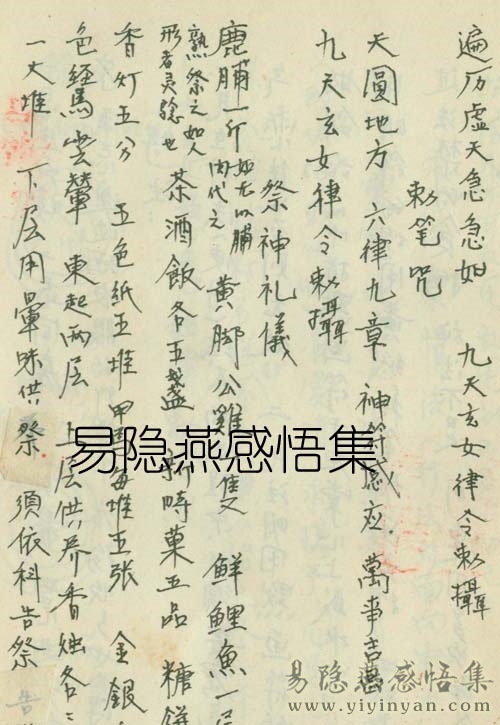 遍历虚天急急如 九天玄女律令敕攝
敕笔咒
天圓地方 六律九章 神符感应 萬事吉昌
九天玄女律令敕攝
祭神礼儀
鹿脯一斤 如无以脯肉代之 黄脚公雞 隻 鮮鯉魚一尾
熟祭之如人形者灵驗也 茶酒飯各五盞 時菓五品 糖餅
香灯五分 五色纸五堆 甲馬每堆五张 金銀
色經馬雲輦 東起两层 上层供养香烛各
一大堆 下层用葷味供祭 須依科告祭
易隐燕感悟集
易隐燕感悟集
www.yiyinyan.com